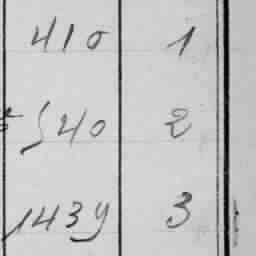 410 1
540 2
1439 3